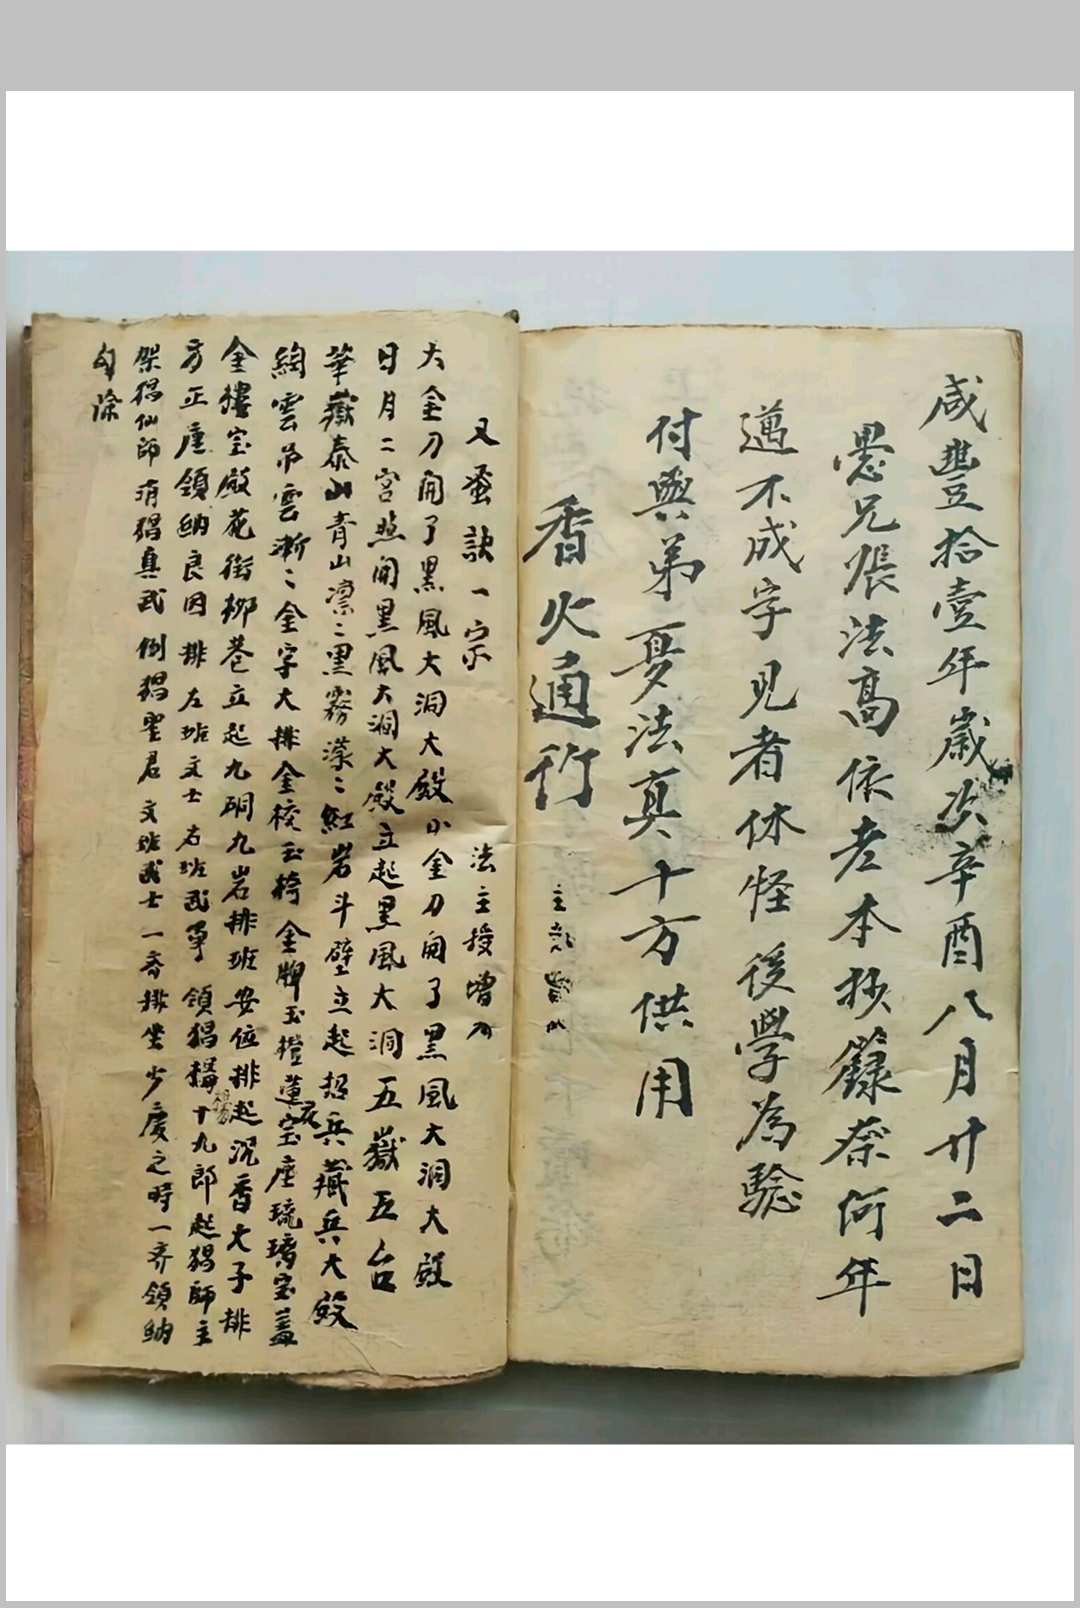 咸豐拾壹年歲次辛酉八月廿二日
愚兄張法高依老本抄籙奈何年
邁不成字見者休怪後學為驗
付與弟 法真十方供用
香火通行
又 訣一宗 法主授
大金刀開了黑風大洞大殿小金刀開了黑風大洞大殿
日月二宮 開黑風大洞大殿立起黑風大洞五嶽五台
華嶽泰山青山凛〻黑霧濛〻紅岩斗壁立起招兵藏兵大殿
雲吊雲漸〻金字大排金校玉椅金牌玉橙蓮花宝座琉璃宝盖
金樓宝殿花街柳巷立起九硐九岩排班安位排起沉香大子排
方正座領納良因排左班文士右班武 領猖 十九郎起猖師主
架猖仙師 猖真武倒猖聖君文班武士一齊排坐少慶之時一齊領納
除